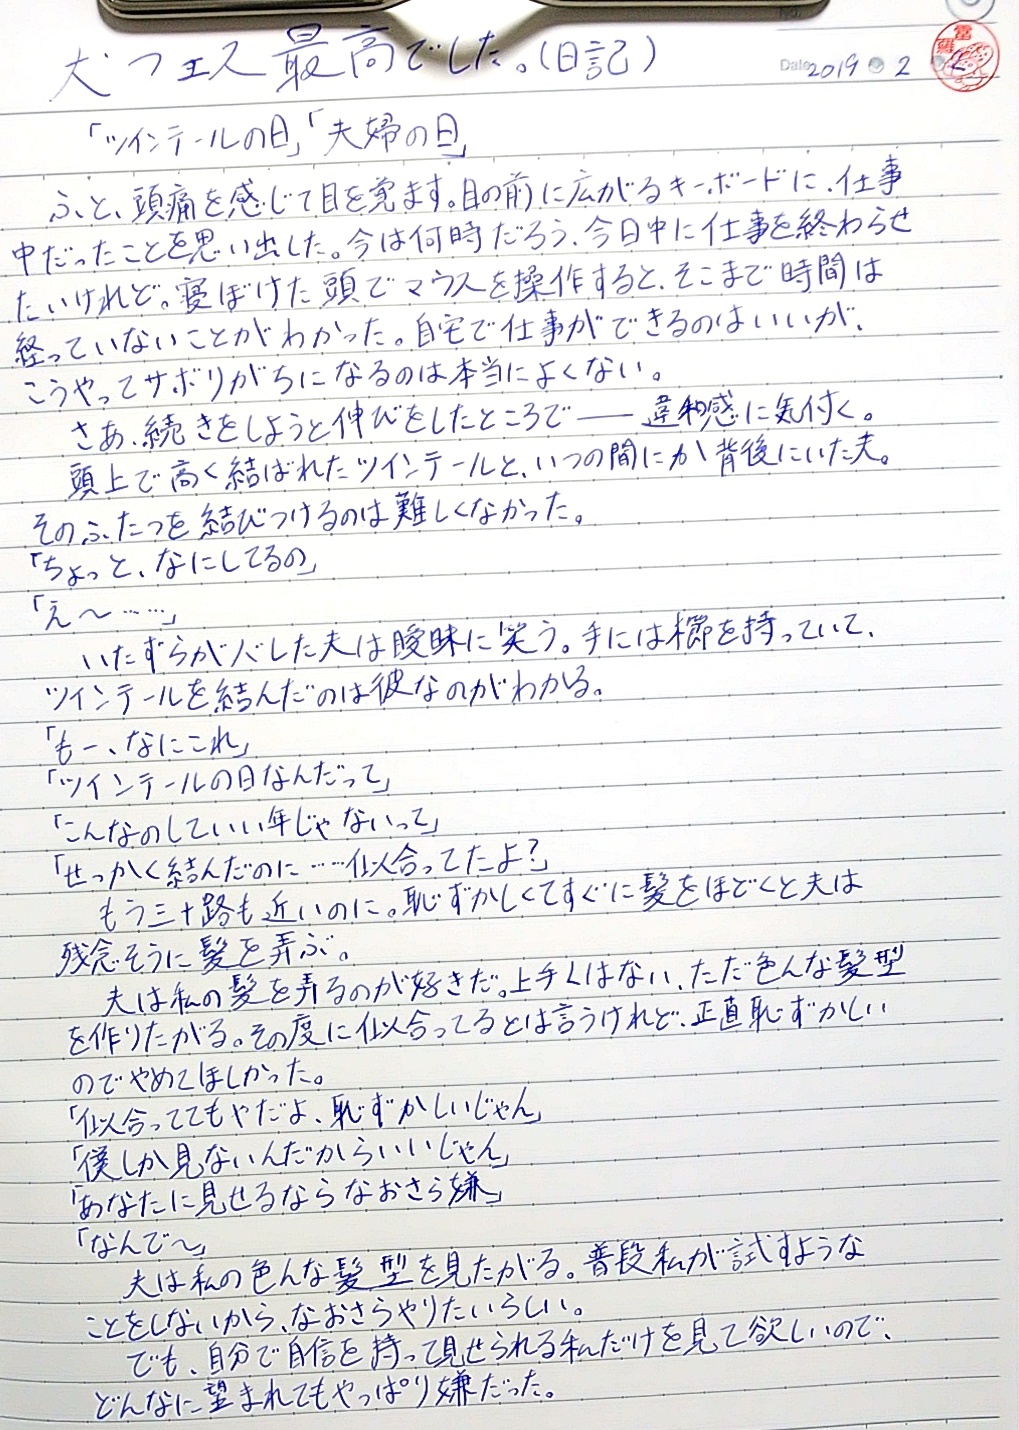 犬フェス最高でした。(日記)
Date 2019 2 2
「ツインテールの日」「夫婦の日」
ふと、頭痛を感じて目を覚ます。目の前に広がるキーボードに、仕事
中だったことを思い出した。今は何時だろう、今日中に仕事を終わらせ
たいけれど。寝ぼけた頭でマウスを操作すると、そこまで時間は
経っていないことがわかった。自宅で仕事ができるのはいいが、
こうやってサボりがちになるのは本当によくない。
さあ、続きをしようと伸びをしたところで――違和感に気付く。
頭上で高く結ばれたツインテールと、いつの間にか背後にいた夫。
そのふたつを結びつけるのは難しくなかった。
「ちょっと、なにしてるの」
「え〜……」
いたずらがバレした夫は曖昧に笑う。手には櫛を持っていて、
ツインテールを結んだのは彼なのがわかる。
「もー、なにこれ」
「ツインテールの日なんだって」
「こんなのしていい年じゃないって」
「せっかく結んだのに……似合ってたよ?」
もう三十路も近いのに。恥ずかしくてすぐに髪をほどくと夫は
残念そうに髪を弄ぶ。
夫は私の髪を弄るのが好きだ。上手くはない、ただ色んな髪型
を作りたがる。その度に似合ってるとは言うけれど、正直恥ずかしい
のでやめてほしかった。
「似合っててもやだよ、恥ずかしいじゃん」
「僕しか見ないんだからいいじゃん」
「あなたに見せるならなおさら嫌」
「なんで〜」
夫は私の色んな髪型を見たがる。普段私が試すような
ことをしないから、なおさらやりたいらしい。
でも、自分で自信を持って見せられる私だけを見て欲しいので、
どんなに望まれてもやっぱり嫌だった。